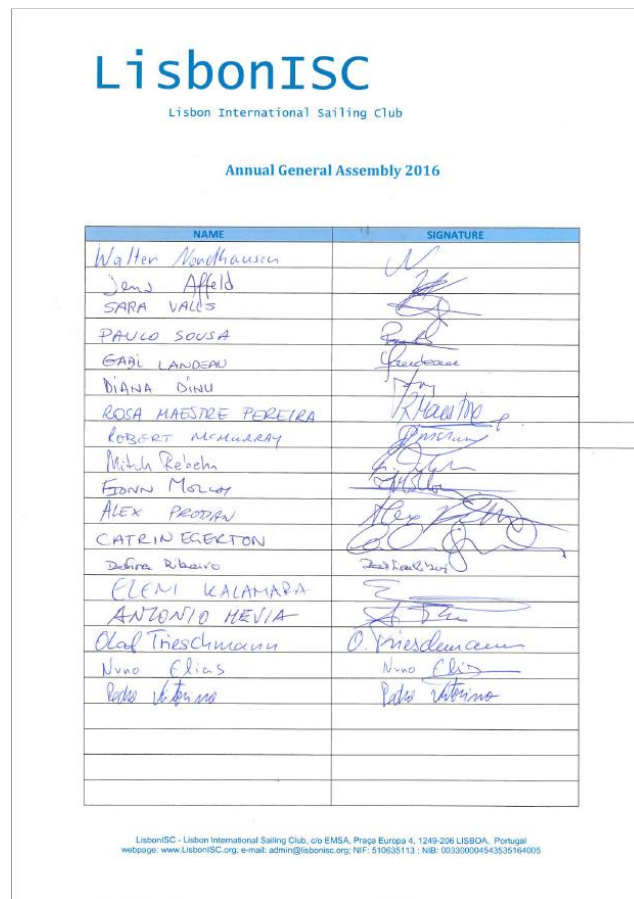 LisbonISC
Lisbon International Sailing Club
Annual General Assembly 2016
NAME SIGNATURE
Walter Nordhausen
Jens Affeld
SARA VALLS
PAULO SOUSA
GABI LANDEAU
DIANA DINU
ROSA MAESTRE PEREIRA RMaestre
ROBERT MCMURRAY
Mitch
FIONN MOLLOY
ALEX PRODAN Alex
CATRIN EGERTON
Ribeiro
ELENI KALAMARA
ANTONIO HEVIA
Olaf Trieschmann O. Trieschmann
Nuno Elias Nuno Elias
Pedro Vitorino Pedro Vitorino
LisbonISC - Lisbon International Sailing Club, c/o EMSA, Praça Europa 4, 1249-206 LISBOA, Portugal
webpage: www.LisbonISC.org; e-mail: admin@lisbonisc.org; NIF: 510635113 ; NIB: 003300004543535164005